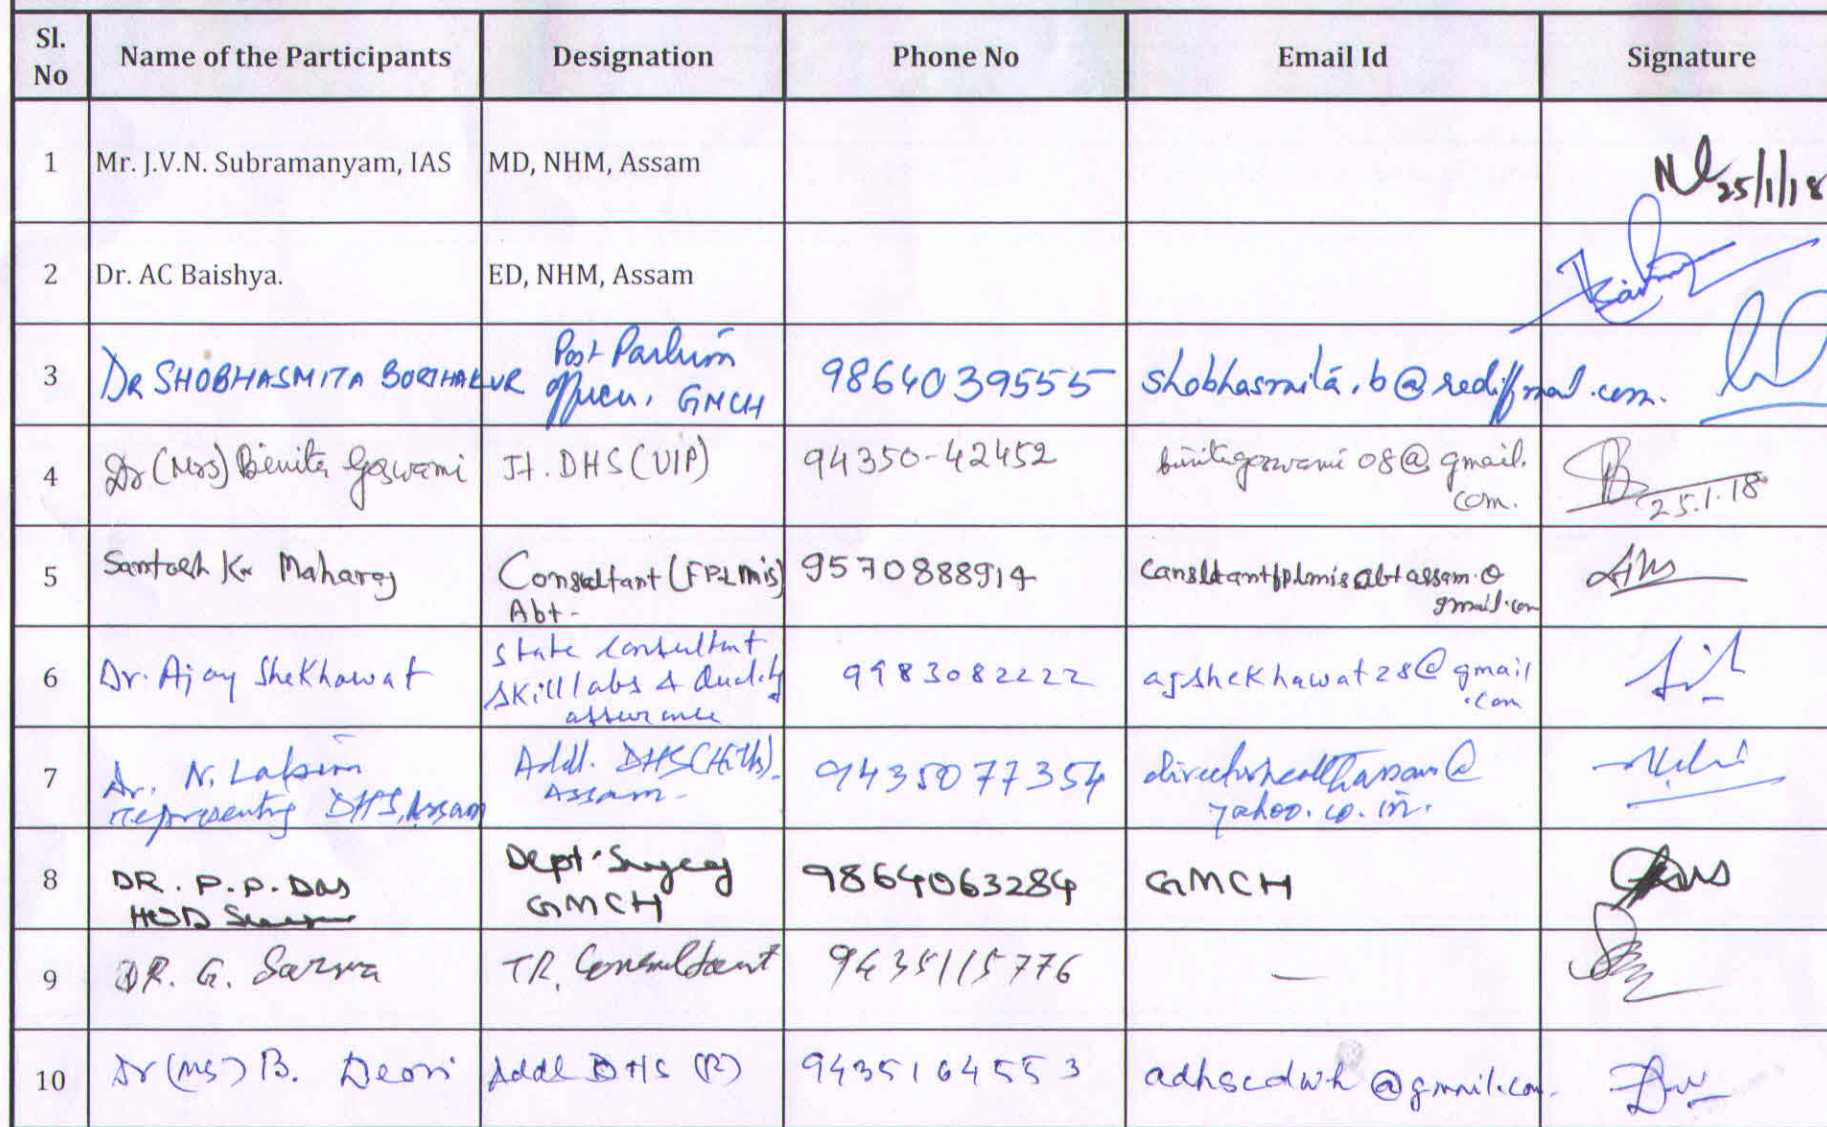 Sl. No Name of the Participants Designation Phone No Email Id Signature
1 Mr. J.V.N. Subramanyam, IAS MD, NHM, Assam 25/1/18
2 Dr. AC Baishya. ED, NHM, Assam
3 DR SHOBHASMITA BORTHAKUR Post Partum officer, GMCH 9864039555 shobhasmita.b@rediffmail.com.
4 Dr (Mrs) Binita Goswami Jt. DHS (UIP) 94350-42452 binitagoswami08@gmail.com. 25.1.18
5 Santosh Kr Maharaj Consultant (FPLMIS) Abt- 9570888914 consultantfplmisabtassam.@gmail.com
6 Dr. Ajay Shekhawat State Consultant Skill labs & Quality assurance 9983082222 ajshekhawat28@gmail.com
7 Dr. N. representing DHS, Assam Addl. DHS (Hills). Assam- 9435077354 directorhealthassam@yahoo.co.in.
8 DR. P.P. DAS HOD Surgery Dept. Surgery GMCH 9864063284 GMCH
9 DR. G. Sarma Consultant 9435115776 —
10 Dr (Ms) B. Deori Addl DHS 9435164553 @gmail.com.